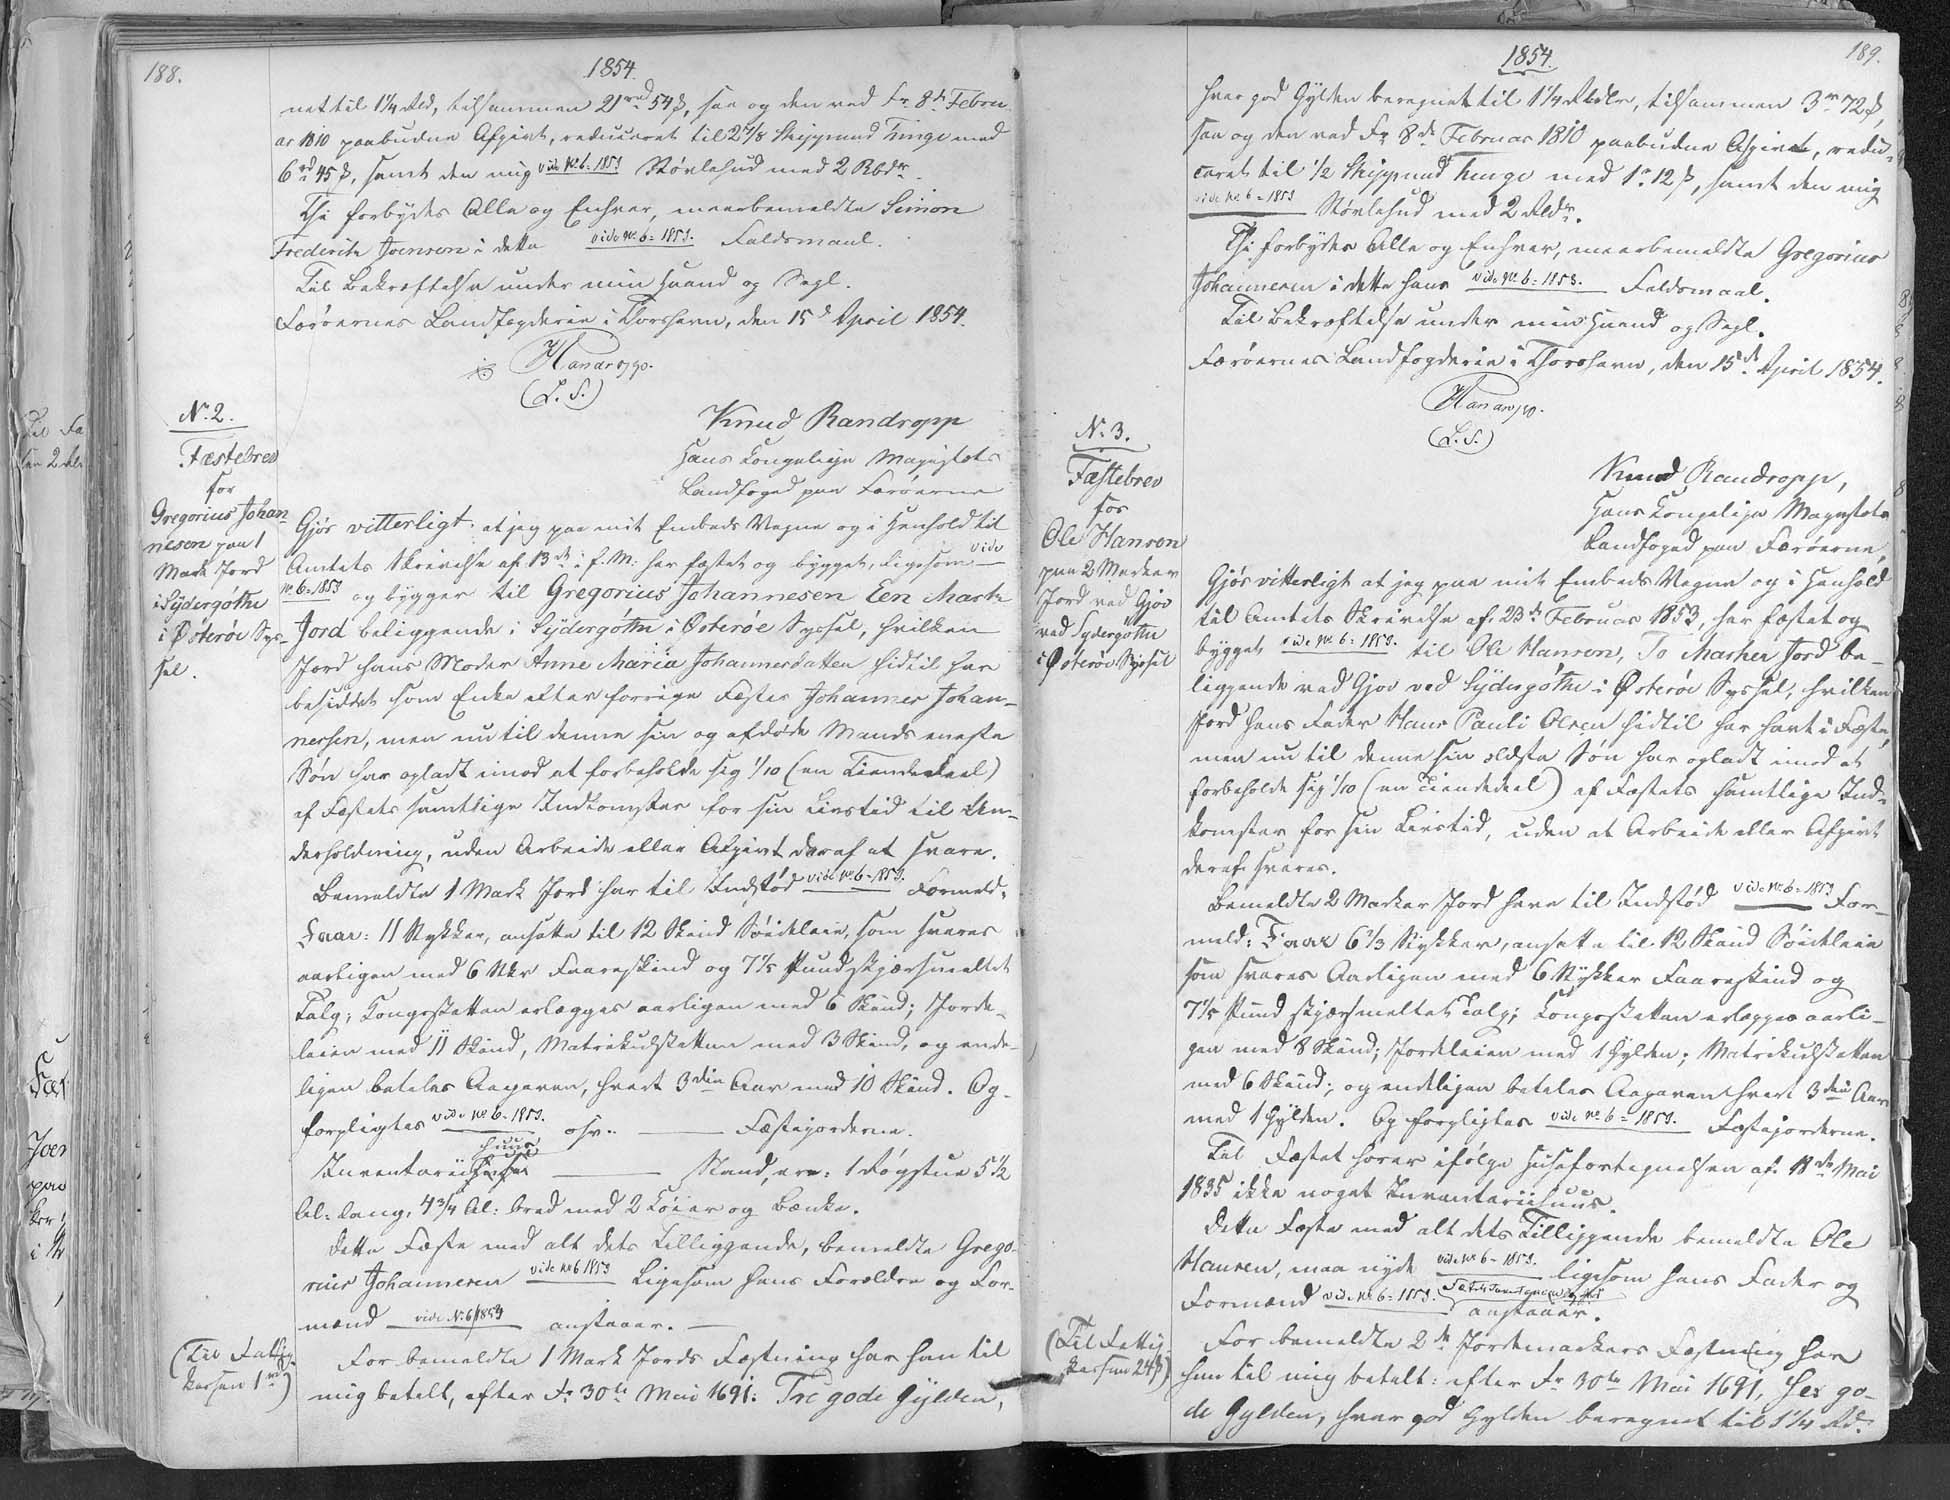 188.
1854.
net til 1¼ Rbd, tilsammen 21 rd 54 ß, saa og den ved Fr. 8de Febru
ar 1810 paabudne Afgivt, reduceret til 2 7/8 Skippund Tunge med
6 rd 45 ß, samt den mig vide No 6 = 1853 Støvlehud med 2 Rbdr.
Thi forbydes Alle og Enhver, meerbemeldte Simon
Frederik Joensen i dette vide No 6 = 1853. Faldsmaal.
Til Bekræftelse under min Haand og Segl.
Færøernes Landfogderie i Thorshavn, den 15de April 1854.
Randropp.
(L. S.)
No. 2.
Fæstebrev
for
Gregorius Johan-
nesen paa 1
Mark Jord
i Sydergøthe
i Østerøe Sys-
sel.
Knud Randropp
Hans Kongelige Majestæts
Landfoged paa Færøerne
Gjør vitterligt: at jeg paa mit Embeds Vegne og i Henhold til
Amtets Skrivelse af 13de i f. M. har fæstet og bygget, ligesom vide
No 6 = 1853 og bygger til Gregorius Johannesen Een Mark
Jord beliggende i Sydergøthe i Østerøe Syssel, hvilken
Jord hans Moder Anne Maria Johannesdatter hidtil har
besiddet som Enke efter forrige Fæster Johannes Johan-
nessen, men nu til denne sin og afdøde Mands eneste
Søn har opladt imod at forbeholde sig 1/10 (en Tiendedeel)
af Fæstets samtlige Indkomster for sin Livstid til Un-
derholdning, uden Arbeide eller Afgivt deraf at svare.
Bemeldte 1 Mark Jord har til Indstød vide No 6 = 1853. Formeld:
Faar: 11 Stykker, ansatte til 12 Skind Søideleie, som svares
aarligen med 6 Stkr Faareskind og 7 1/5 Pund skjærsmeltet
Talg; Kongsskatten erlægges aarligen med 6 Skind; Jorde-
leien med 11 Skind, Matrikulskatten med 3 Skind, og ende-
ligen betales Aagaven, hvert 3die Aar med 10 Skind. Og
forpligtes vide No 6 = 1853. osv. Fæstejorderne.
Inventarii huus Stand, ere: 1 Røgstue 5½
Al: lang, 4¾ Al: bred med 2 Køier og Bænke.
Dette Fæste med alt dets Tilliggende, bemeldte Grego-
rius Johannesen vide No 6 1853 ligesom hans Forældre og For-
mænd vide No. 6/1853 anstaaer.
(Til Fattig-
kassen 1 rd)
For bemeldte 1 Mark Jords Fæstning har han til
mig betalt, efter Fr. 30te Mai 1691: Tre gode Gylden,
189.
1854.
hver god Gylden beregnet til 1¼ Rbdlr, tilsammen 3 rd 72 ß,
saa og den ved Fr. 8de Februar 1810 paabudne Afgivt, redu-
ceret til ½ Skippund Tunge med 1 rd 12 ß, samt den mig
vide No 6 = 1853 Støvlehud med 2 Rbdr.
Thi forbydes Alle og Enhver, meerbemeldte Gregorius
Johannesen i dette hans vide No 6 = 1853. Faldsmaal.
Til Bekræftelse under min Haand og Segl.
Færøernes Landfogderie i Thorshavn, den 15de April 1854.
Randropp.
(L. S.)
No. 3.
Fæstebrev
for
Ole Hansen
paa 2 Marker
Jord ved Gjov
ved Sydergøthe
i Østerøe Syssel
Knud Randropp,
Hans Kongelige Majestæts
Landfoged paa Færøerne,
Gjør vitterligt at jeg paa mit Embeds Vegne og i Henhold
til Amtets Skrivelse af 23de Februar 1853, har fæstet og
bygget vide No 6 = 1853. til Ole Hansen, To Marker Jord be-
liggende ved Gjov ved Sydergøthe i Østerøe Syssel, hvilken
Jord hans Fader Hans Pauli Olsen hidtil har havt i Fæste,
men nu til denne sin ældste Søn har opladt imod at
forbeholde sig 1/10 (en Tiendedeel) af Fæstets samtlige Ind-
komster for sin Livstid, uden at Arbeide eller Afgivt
deraf svares.
Bemeldte 2 Marker Jord have til Indstød vide No 6 = 1853 For-
meld: Faar 6⅓ Stykker, ansatte til 12 Skind Søideleie
som svares Aarligen med 6 Stykker Faareskind og
7 1/5 Pund skjærsmeltet Talg; Kongsskatten erlægges aarli-
gen med 8 Skind; Jordeleien med 1 Gylden; Matrikulskatten
med 6 Skind; og endeligen betales Aagaven hvert 3die Aar
med 1 Gylden. Og forpligtes vide No 6 = 1853. Fæstejorderne.
Til Fæstet hører ifølge Husefortegnelsen af 11de Mai
1835 ikke noget Inventariihuus.
Dette Fæste med alt dets Tilliggende bemeldte Ole
Hansen, maa nyde vide No 6 = 1853. ligesom hans Fader og
Formænd vide No 6 = 1853. anstaaer.
(Til Fattig-
kassen 24 ß)
For bemeldte 2de Jordemarkers Fæstning har
han til mig betalt: efter Fr. 30te Mai 1691, Sex go-
de Gylden, hver god Gylden beregnet til 1¼ Rd.